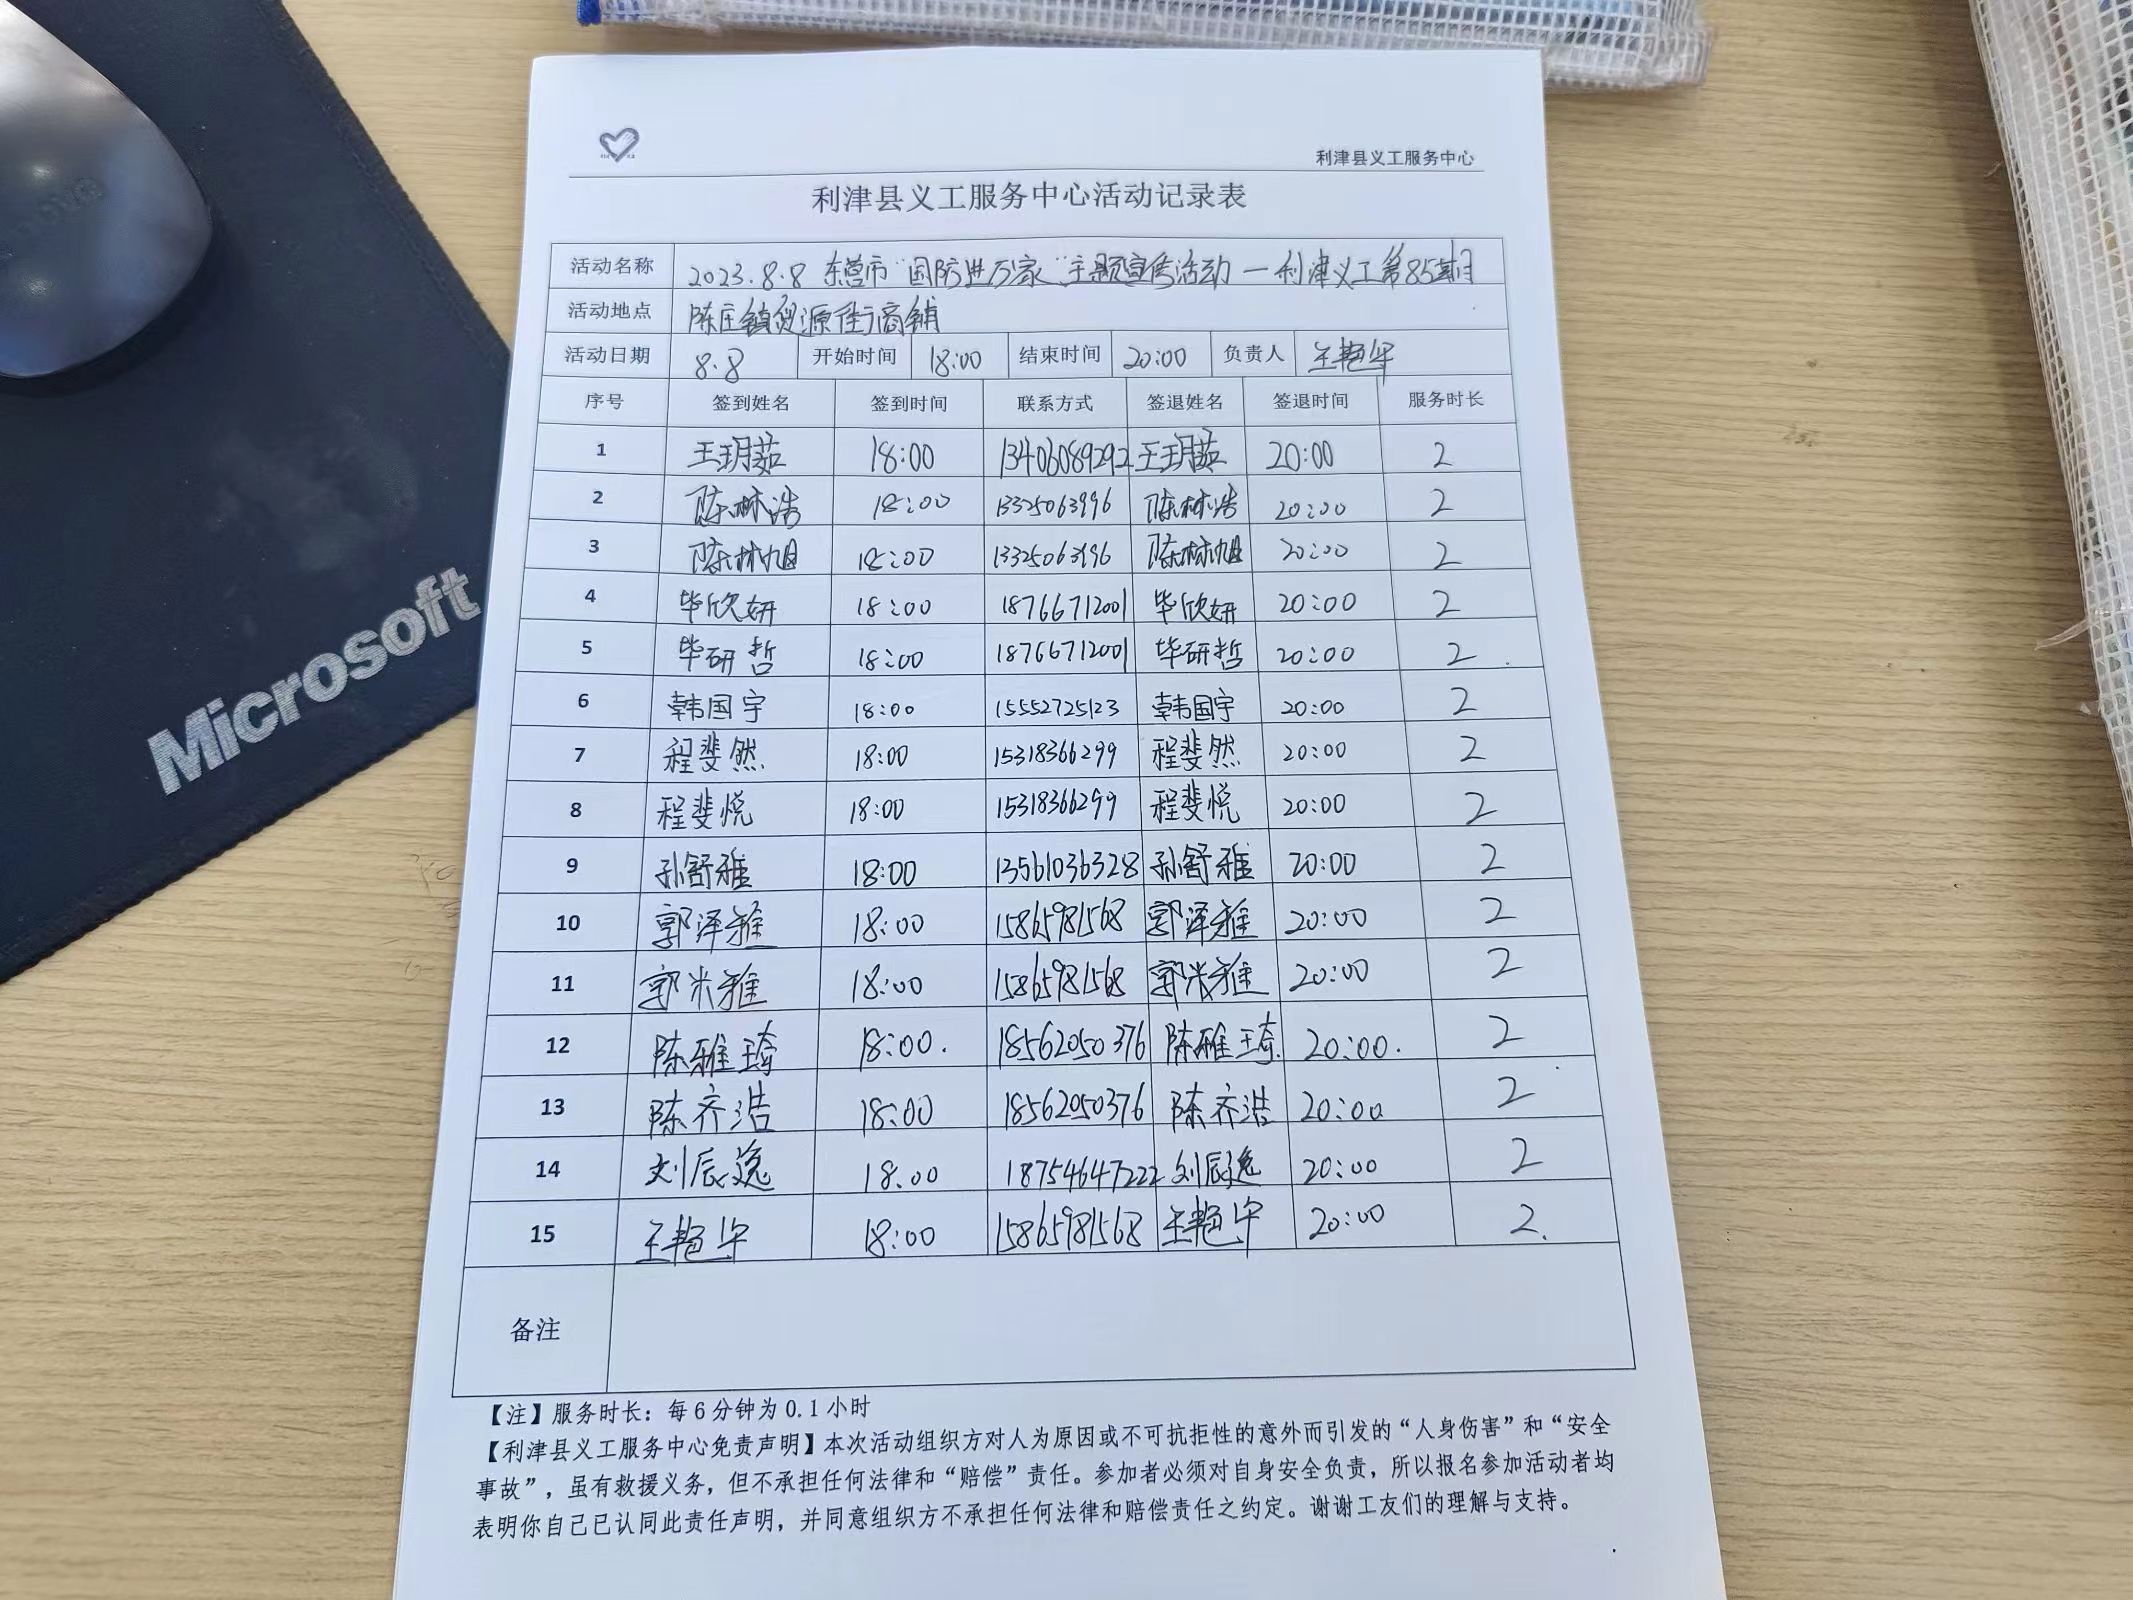 利津县义工服务中心
利津县义工服务中心活动记录表
活动名称 2023.8.8 东营市“国防进万家”主题宣传活动—利津义工第85期
活动地点 陈庄镇货源街商铺
活动日期 8.8 开始时间 18:00 结束时间 20:00 负责人 王艳华
序号 签到姓名 签到时间 联系方式 签退姓名 签退时间 服务时长
1 王玥茹 18:00 13406089292 王玥茹 20:00 2
2 陈林浩 18:00 13325063996 陈林浩 20:00 2
3 陈林旭 18:00 13325063996 陈林旭 20:00 2
4 毕欣妍 18:00 18766712001 毕欣妍 20:00 2
5 毕研哲 18:00 18766712001 毕研哲 20:00 2
6 韩国宇 18:00 15552725123 韩国宇 20:00 2
7 程斐然 18:00 15318366299 程斐然 20:00 2
8 程斐悦 18:00 15318366299 程斐悦 20:00 2
9 孙舒雅 18:00 13561036328 孙舒雅 20:00 2
10 郭泽雅 18:00 15865981568 郭泽雅 20:00 2
11 郭米雅 18:00 15865981568 郭米雅 20:00 2
12 陈雅琦 18:00. 18562050376 陈雅琦. 20:00. 2
13 陈齐浩 18:00 18562050376 陈齐浩 20:00 2
14 刘辰逸 18.00 18754647222 刘辰逸 20:00 2
15 王艳华 18:00 15865981568 王艳华 20:00 2.
备注
【注】服务时长：每6分钟为0.1小时
【利津县义工服务中心免责声明】本次活动组织方对人为原因或不可抗拒性的意外而引发的“人身伤害”和“安全
事故”，虽有救援义务，但不承担任何法律和“赔偿”责任。参加者必须对自身安全负责，所以报名参加活动者均
表明你自己已认同此责任声明，并同意组织方不承担任何法律和赔偿责任之约定。谢谢工友们的理解与支持。
Microsoft